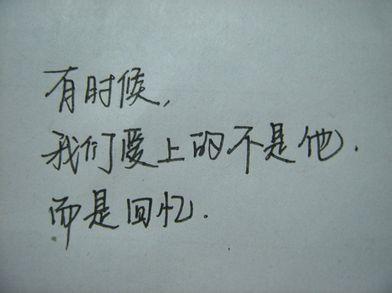 有时候,
我们爱上的不是他.
而是回忆.